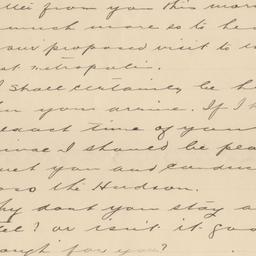 from you this mor
much more so to he
our proposed visit to
at metropolis.
I shall certainly be h
when you arrive. If I k
exact time of your
rival I should be plea
meet you and conduc
ross the Hudson.
hy dont you stay a
tel? or isn't it goo
ough for you?